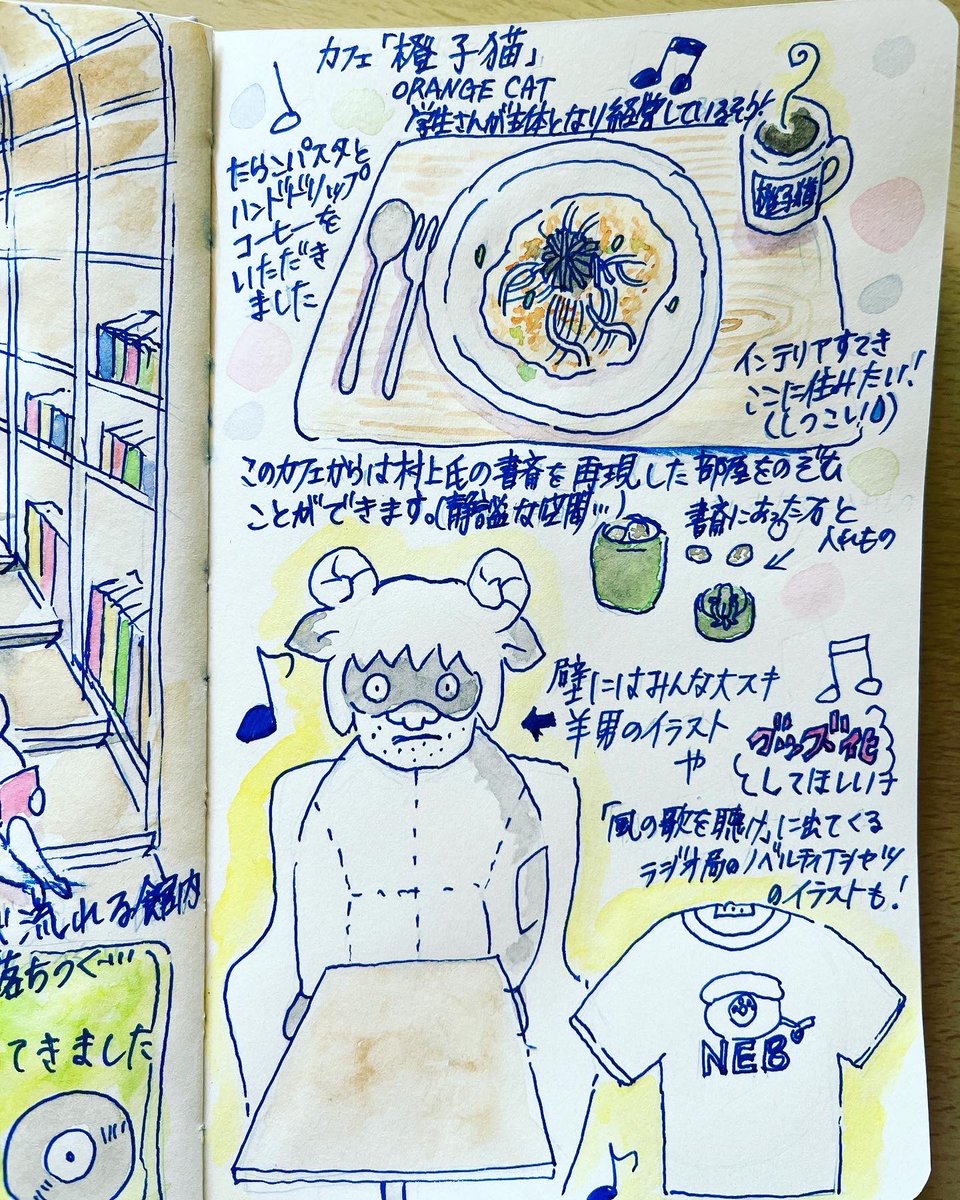 カフェ「橙子猫」
ORANGE CAT
学生さんが主体となり経営しているそう!
たらこパスタと
ハンドドリップ
コーヒーを
いただき
ました
橙子猫
インテリアすてき
ここに住みたい!
(しつこい!)
このカフェからは村上氏の書斎を再現した部屋をのぞむ
ことができます。(静謐な空間…)
書斎にあった石と
入れもの
壁にはみんな大スキ
羊男のイラスト
や
グッズ化
してほしい
「風の歌を聴け」に出てくる
ラジオ局のノベルティTシャツ
のイラストも!
NEB
流れる館内
落ちつく…
てきました